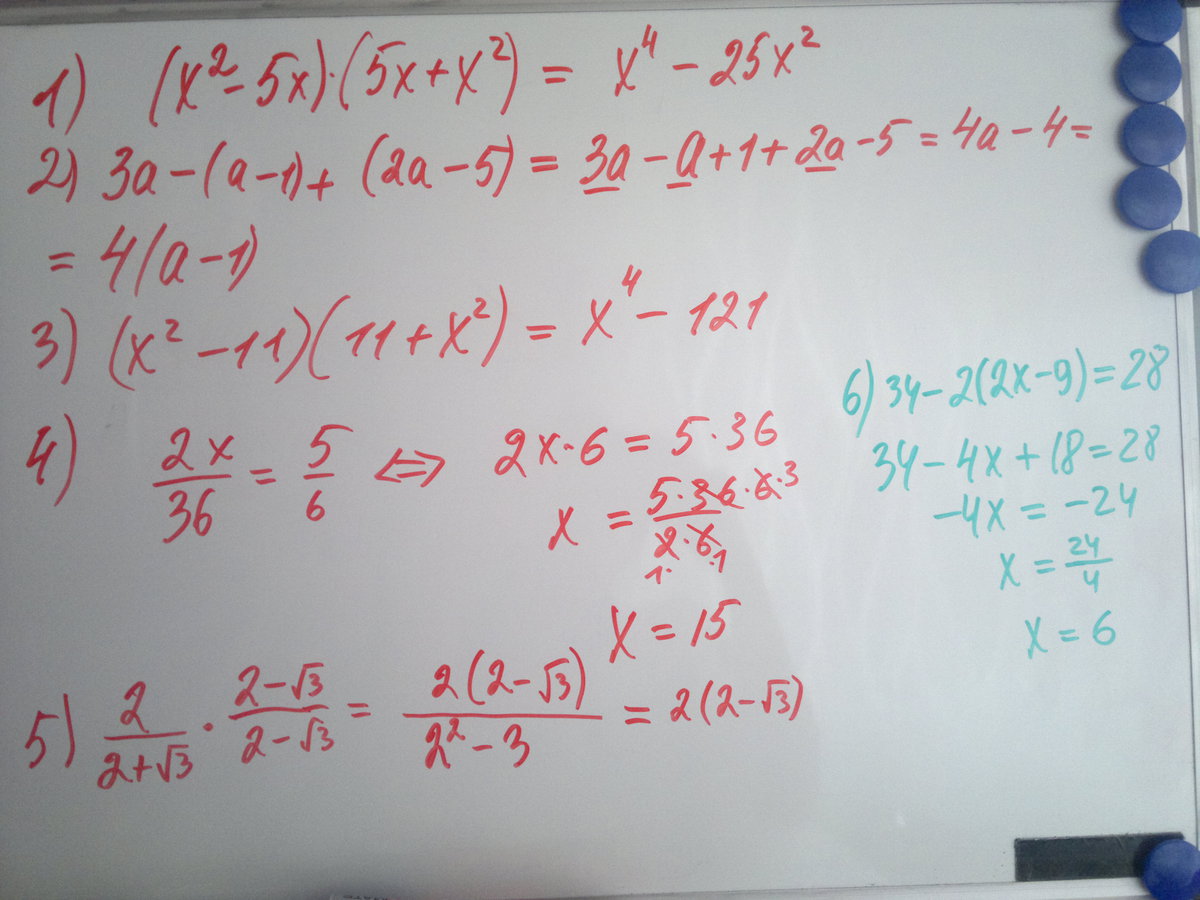 1) (x²-5x)·(5x+x²) = x⁴ - 25x²
2) 3a-(a-1)+(2a-5) = 3a-a+1+2a-5 = 4a-4=
= 4(a-1)
3) (x²-11)(11+x²) = x⁴ - 121
4) 2x/36 = 5/6 ⇔ 2x·6 = 5·36
x = 5·36·6·3/2·6
1· ·1
x = 15
5) 2/2+√3 · 2-√3/2-√3 = 2(2-√3)/2²-3 = 2(2-√3)
6) 34-2(2x-9)=28
34-4x+18=28
-4x = -24
x = 24/4
x = 6